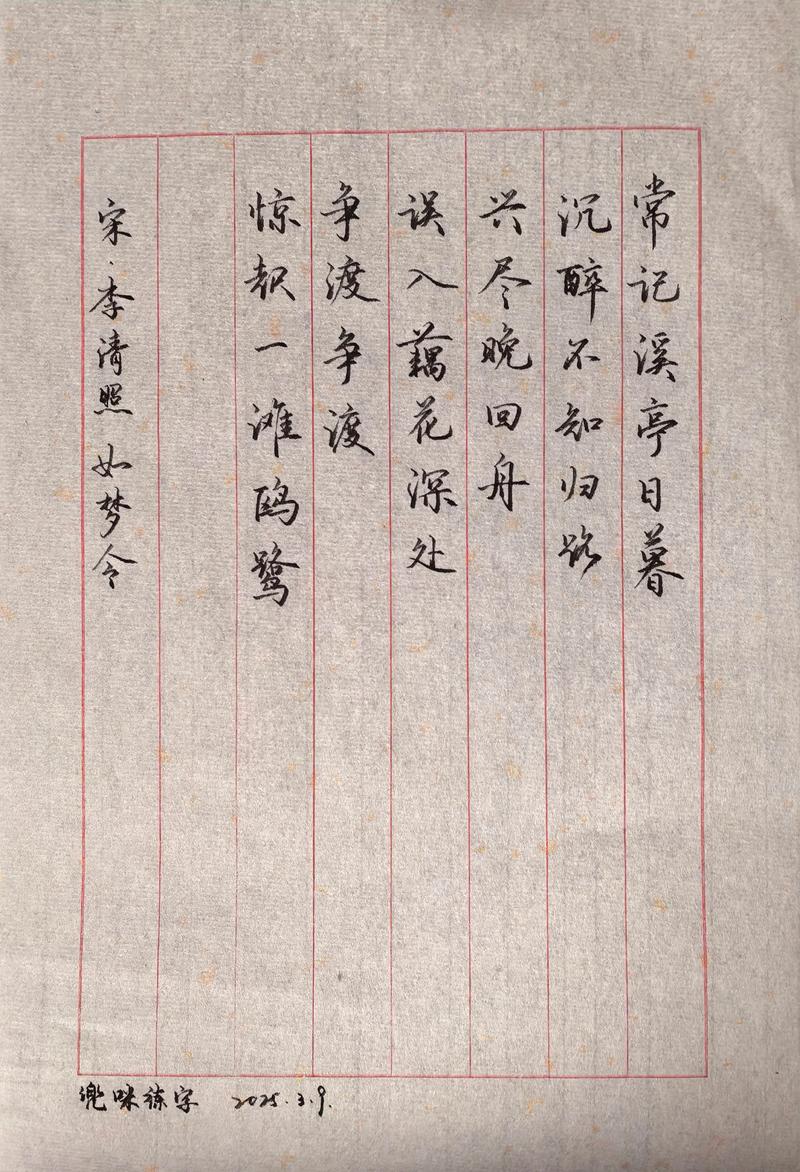 常记溪亭日暮
沉醉不知归路
兴尽晚回舟
误入藕花深处
争渡争渡
惊起一滩鸥鹭
宋·李清照 如梦令
兜咪练字 2025.3.9.